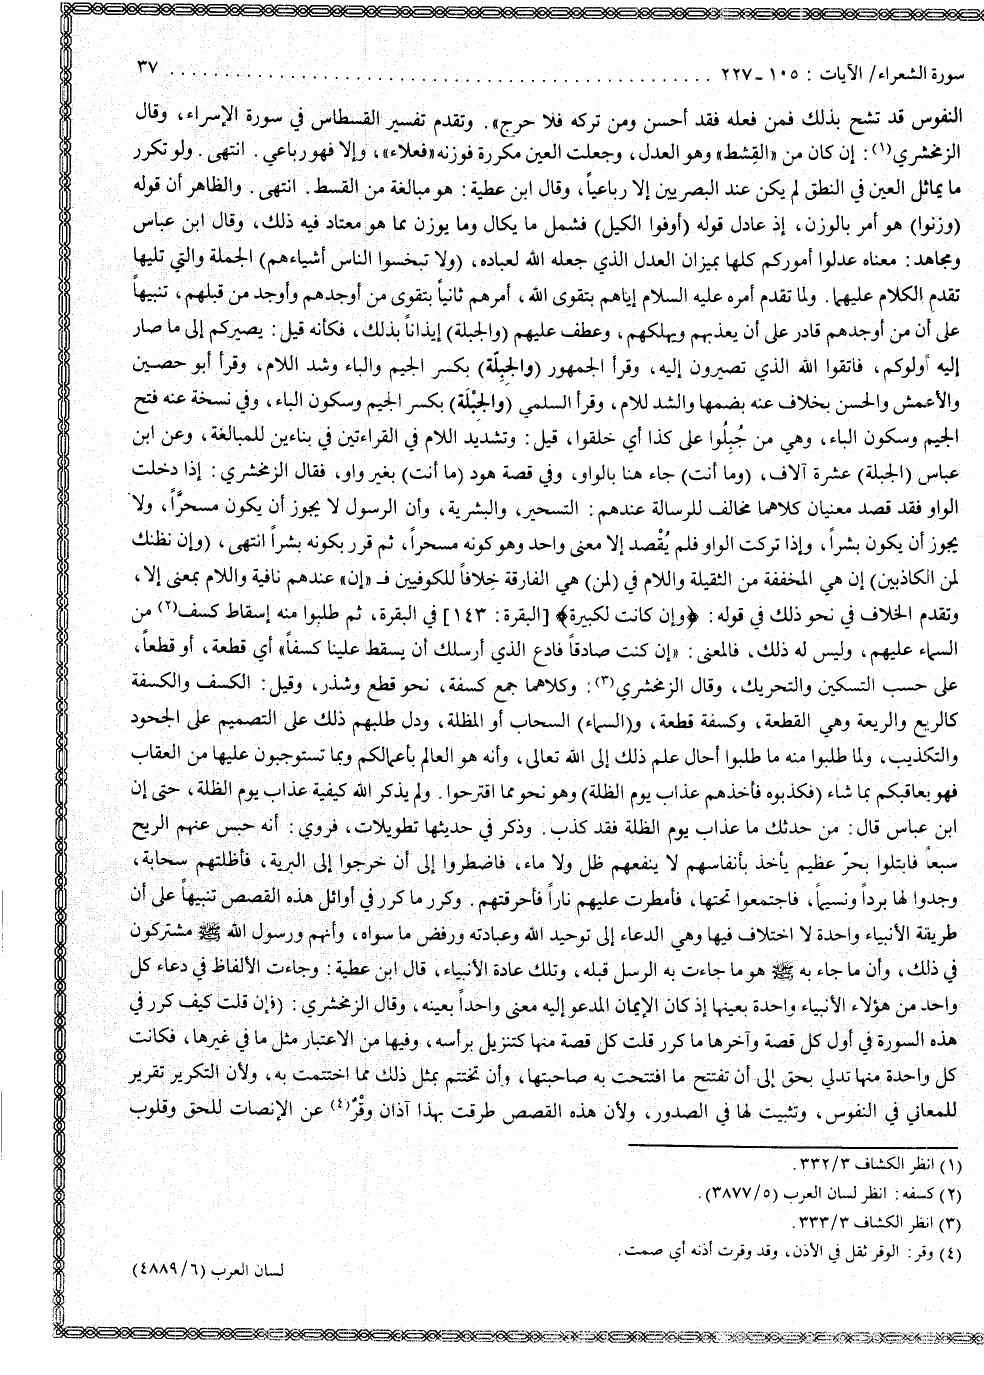 سورة الشعراء/ الآيات : ١٠٥ ـ ٢٢٧ . . . . . . . . . . . . . . . . . . . . . . . . . . . . . . . . . . . . . . . . ٣٧
النفوس قد تشح بذلك فمن فعله فقد أحسن ومن تركه فلا حرج». وتقدم تفسير القسطاس في سورة الإسراء، وقال
الزمخشري(١): إن كان من «القِسْط» وهو العدل، وجعلت العين مكررة فوزنه «فعلاء»، وإلا فهو رباعي. انتهى. ولو تكرر
ما يماثل العين في النطق لم يكن عند البصريين إلا رباعياً، وقال ابن عطية: هو مبالغة من القسط. انتهى. والظاهر أن قوله
(وزنوا) هو أمر بالوزن، إذ عادل قوله (أوفوا الكيل) فشمل ما يكال وما يوزن مما هو معتاد فيه ذلك، وقال ابن عباس
ومجاهد: معناه عدلوا أموركم كلها بميزان العدل الذي جعله الله لعباده، (ولا تبخسوا الناس أشياءهم) الجملة والتي تليها
تقدم الكلام عليهما. ولما تقدم أمره عليه السلام إياهم بتقوى الله، أمرهم ثانياً بتقوى من أوجدهم وأوجد من قبلهم، تنبيهاً
على أن من أوجدهم قادر على أن يعذبهم ويهلكهم، وعطف عليهم (والجبلة) إيذاناً بذلك، فكأنه قيل: يصيركم إلى ما صار
إليه أولوكم، فاتقوا الله الذي تصيرون إليه، وقرأ الجمهور (والجِبِلّة) بكسر الجيم والباء وشد اللام، وقرأ أبو حصين
والأعمش والحسن بخلاف عنه بضمها والشد للام، وقرأ السلمي (والجِبْلَة) بكسر الجيم وسكون الباء، وفي نسخة عنه فتح
الجيم وسكون الباء، وهي من جُبِلُوا على كذا أي خلقوا، قيل: وتشديد اللام في القراءتين في بناءين للمبالغة، وعن ابن
عباس (الجبلة) عشرة آلاف، (وما أنت) جاء هنا بالواو، وفي قصة هود (ما أنت) بغير واو، فقال الزمخشري: إذا دخلت
الواو فقد قصد معنيان كلاهما مخالف للرسالة عندهم: التسحير، والبشرية، وأن الرسول لا يجوز أن يكون مسحراً، ولا
يجوز أن يكون بشراً، وإذا تركت الواو فلم يُقْصد إلا معنى واحد وهو كونه مسحراً، ثم قرر بكونه بشراً انتهى، (وإن نظنك
لمن الكاذبين) إن هي المخففة من الثقيلة واللام في (لمن) هي الفارقة خِلافاً للكوفيين فـ «إن» عندهم نافية واللام بمعنى إلا،
وتقدم الخلاف في نحو ذلك في قوله: ﴿وإن كانت لكبيرة﴾ [البقرة: ١٤٣] في البقرة، ثم طلبوا منه إسقاط كسف(٢) من
السماء عليهم، وليس له ذلك، فالمعنى: «إن كنت صادقاً فادع الذي أرسلك أن يسقط علينا كسفاً» أي قطعة، أو قطعاً،
على حسب التسكين والتحريك، وقال الزمخشري(٣): وكلاهما جمع كسفة، نحو قطع وشذر، وقيل: الكسف والكسفة
كالريع والريعة وهي القطعة، وكسفة قطعة، و(السماء) السحاب أو المظلة، ودل طلبهم ذلك على التصميم على الجحود
والتكذيب، ولما طلبوا منه ما طلبوا أحال علم ذلك إلى الله تعالى، وأنه هو العالم بأعمالكم وبما تستوجبون عليها من العقاب
فهو يعاقبكم بما شاء (فكذبوه فأخذهم عذاب يوم الظلة) وهو نحو مما اقترحوا. ولم يذكر الله كيفية عذاب يوم الظلة، حتى إن
ابن عباس قال: من حدثك ما عذاب يوم الظلة فقد كذب. وذكر في حديثها تطويلات، فروي: أنه حبس عنهم الريح
سبعاً فابتلوا بحرّ عظيم يأخذ بأنفاسهم لا ينفعهم ظل ولا ماء، فاضطروا إلى أن خرجوا إلى البرية، فأظلتهم سحابة،
وجدوا لها برداً ونسيماً، فاجتمعوا تحتها، فأمطرت عليهم ناراً فأحرقتهم. وكرر ما كرر في أوائل هذه القصص تنبيهاً على أن
طريقة الأنبياء واحدة لا اختلاف فيها وهي الدعاء إلى توحيد الله وعبادته ورفض ما سواه، وأنهم ورسول الله ﷺ مشتركون
في ذلك، وأن ما جاء به ﷺ هو ما جاءت به الرسل قبله، وتلك عادة الأنبياء، قال ابن عطية: وجاءت الألفاظ في دعاء كل
واحد من هؤلاء الأنبياء واحدة بعينها إذ كان الإيمان المدعو إليه معنى واحداً بعينه، وقال الزمخشري: (فإن قلت كيف كرر في
هذه السورة في أول كل قصة وآخرها ما كرر قلت كل قصة منها كتنزيل برأسه، وفيها من الاعتبار مثل ما في غيرها، فكانت
كل واحدة منها تدلي بحق إلى أن تفتتح ما افتتحت به صاحبتها، وأن تختتم بمثل ذلك مما اختتمت به، ولأن التكرير تقرير
للمعاني في النفوس، وتثبيت لها في الصدور، ولأن هذه القصص طرقت بهذا آذان وقْرٌ(٤) عن الإنصات للحق وقلوب
(١) انظر الكشاف ٣٣٢/٣.
(٢) كسفه: انظر لسان العرب (٣٨٧٧/٥).
(٣) انظر الكشاف ٣٣٣/٣.
(٤) وقر: الوقر ثقل في الأذن، وقد وقرت أذنه أي صمت.
لسان العرب (٤٨٨٩/٦)